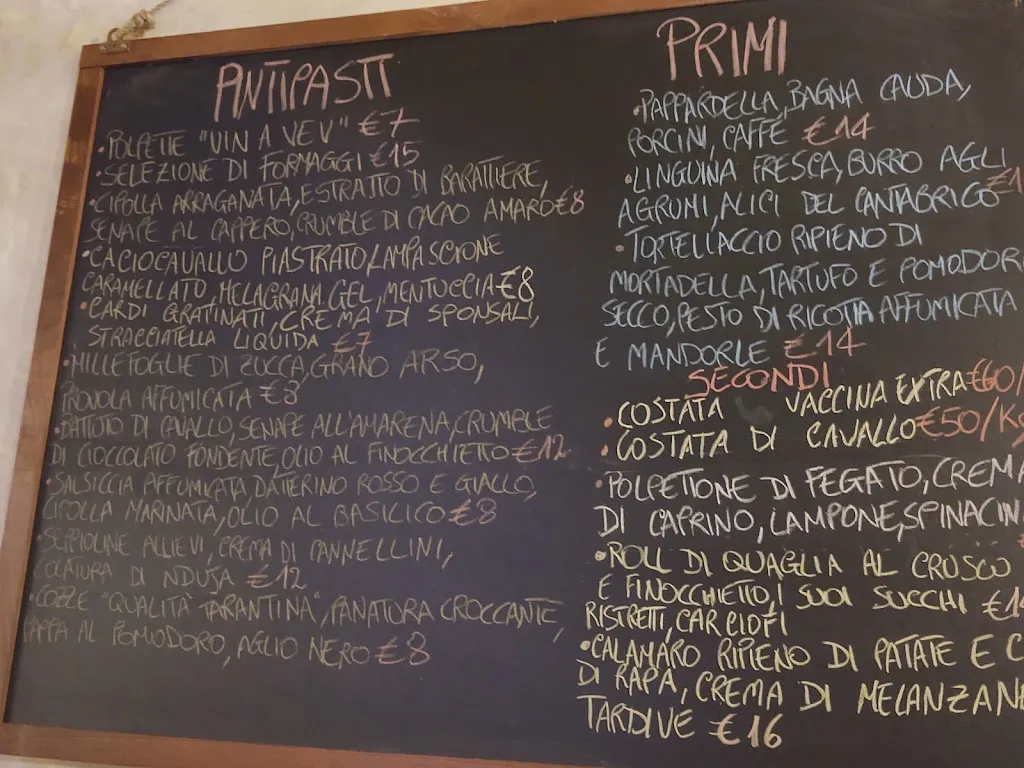 ANTIPASTI
• POLPETTE "VIN A VEV" €7
• SELEZIONE DI FORMAGGI €15
• CIPOLLA ARRAGANATA, ESTRATTO DI BARATTIERE,
SENAPE AL CAPPERO, CRUMBLE DI CACAO AMARO €8
• CACIOCAVALLO PIASTRATO, LAMPASCIONE
CARAMELLATO, MELAGRANA GEL, MENTUCCIA €8
• CARDI GRATINATI, CREMA DI SPONSALI,
STRACCIATELLA LIQUIDA €7
• MILLEFOGLIE DI ZUCCA, GRANO ARSO,
PROVOLA AFFUMICATA €8
• BATTUTO DI CAVALLO, SENAPE ALL'AMARENA, CRUMBLE
DI CIOCCOLATO FONDENTE, OLIO AL FINOCCHIETTO €12
• SALSICCIA AFFUMICATA, DATTERINO ROSSO E GIALLO,
CIPOLLA MARINATA, OLIO AL BASILICO €8
• SEPPIOLINE ALLIEVI, CREMA DI CANNELLINI,
COLATURA DI NDUJA €12
• COZZE "QUALITÀ TARANTINA", PANATURA CROCCANTE,
PAPPA AL POMODORO, AGLIO NERO €8
PRIMI
• PAPPARDELLA, BAGNA CAUDA,
PORCINI, CAFFÈ €14
• LINGUINA FRESCA, BURRO AGLI
AGRUMI, ALICI DEL CANTABRICO
• TORTELLACCIO RIPIENO DI
MORTADELLA, TARTUFO E POMODOR
SECCO, PESTO DI RICOTTA AFFUMICATA
E MANDORLE €14
SECONDI
• COSTATA VACCINA EXTRA €60/
• COSTATA DI CAVALLO €50/Kg
• POLPETTONE DI FEGATO, CREMA
DI CAPRINO, LAMPONE, SPINACIN
• ROLL DI QUAGLIA AL CRUSCO
E FINOCCHIETTO, I SUOI SUCCHI
RISTRETTI, CARCIOFI
• CALAMARO RIPIENO DI PATATE E C
DI RAPA, CREMA DI MELANZANE
TARDIVE €16